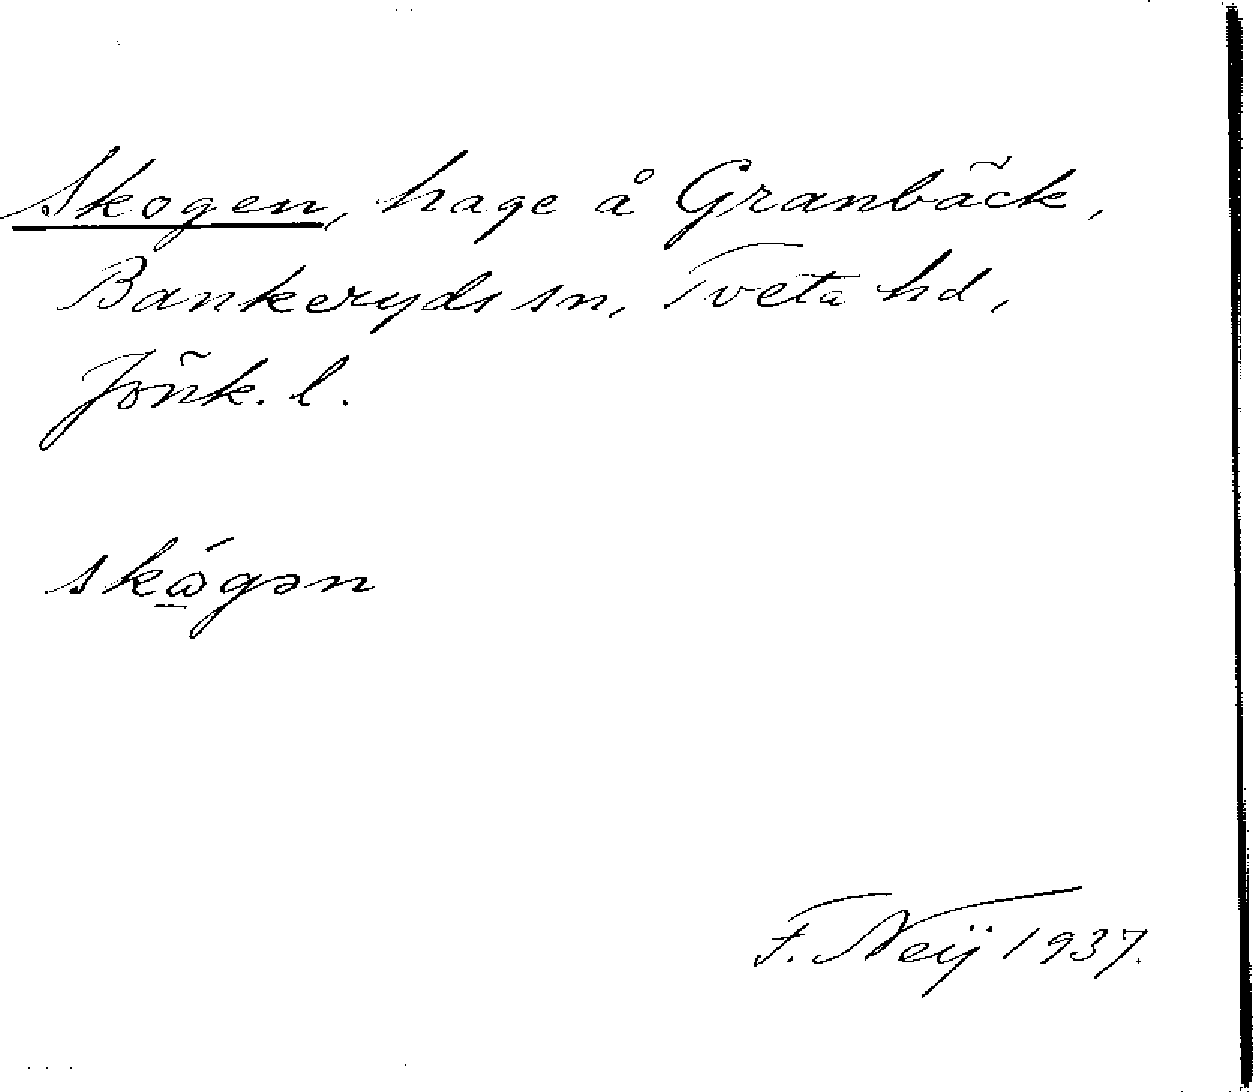 Skogen, hage å Granbäck,
Bankeryds sn, Tveta hd,
Jönk. l.
skǫ́gən
F. Neÿ 1937.